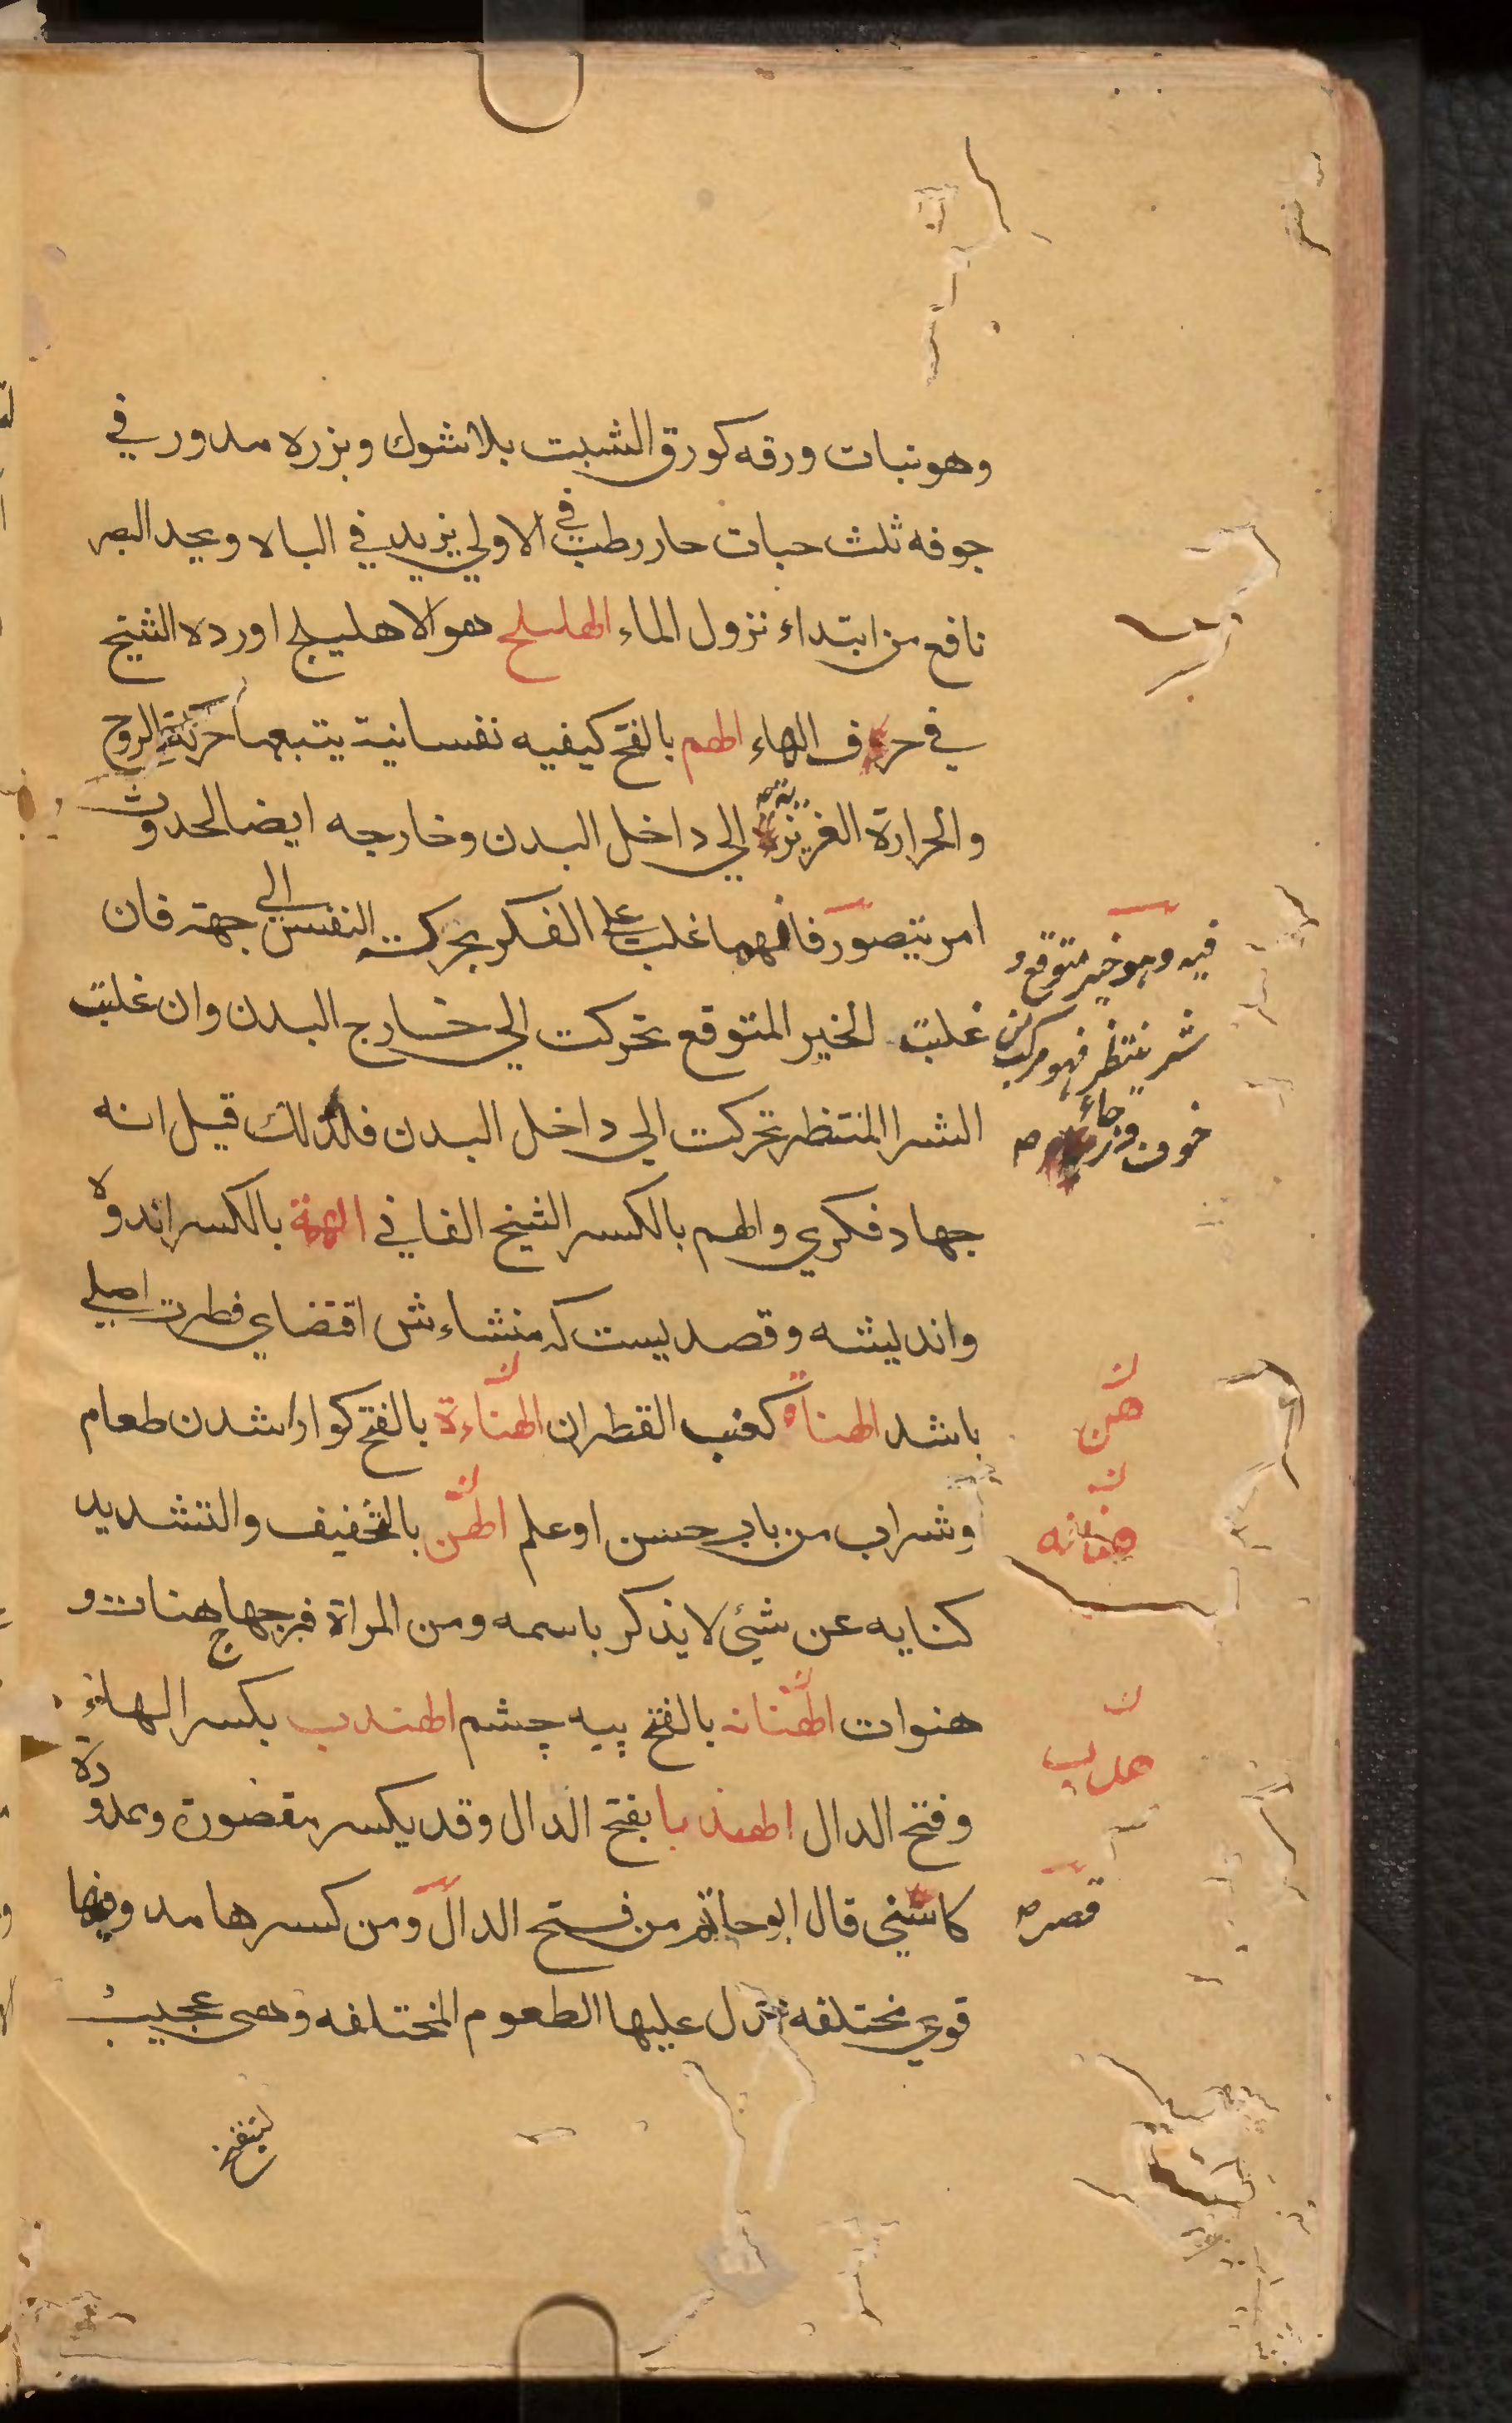 وهو نبات ورقه كورق الشبت بلا شوك وبزره مدور في
جوفه ثلث حبات حار رطب في الاولي يزيد في الباه ويحد البصر
نافع من ابتداء نزول الماء الهليلج هو الاهليلج اورده الشيخ
في حرف الهاء الهم بالفتح كيفيه نفسانية يتبعها حركة الروح
والحرارة الغريزية الي داخل البدن وخارجه ايضا لحدوث
امر يتصور فانهما غلب علي الفكر بحركت النفس الي جهة فان
فيه وهو خير متوقع و
شر ينتظر فهو مركب من
خوف ورجاء
غلبت الخير المتوقع تحركت الي خارج البدن وان غلبت
الشر المنتظر تحركت الي داخل البدن فلذلك قيل انه
جهاد فكري والهم بالكسر الشيخ الفاني الهمة بالكسر اندوه
وانديشه وقصديست كه منشاءش اقتضاي فطرت اصلي
باشد الهناة كعنب القطران الهناءة بالفتح كوارا شدن طعام
هن
وشراب من باب حسن او علم الهن بالتخفيف والتشديد
هنانه
كنايه عن شيئ لا يذكر باسمه ومن المراة فرجها ج هنات و
هنوات الهنانه بالفتح پيه چشم الهندب بكسر الهاء
هدب
وفتح الدال الهندبا بفتح الدال وقد يكسر مقصورة وممدودة
كاسني قال ابو حاتم من فتح الدال ومن كسرها مد وفيها
قصر
قوي مختلفه تدل عليها الطعوم المختلفه وهي عجيب